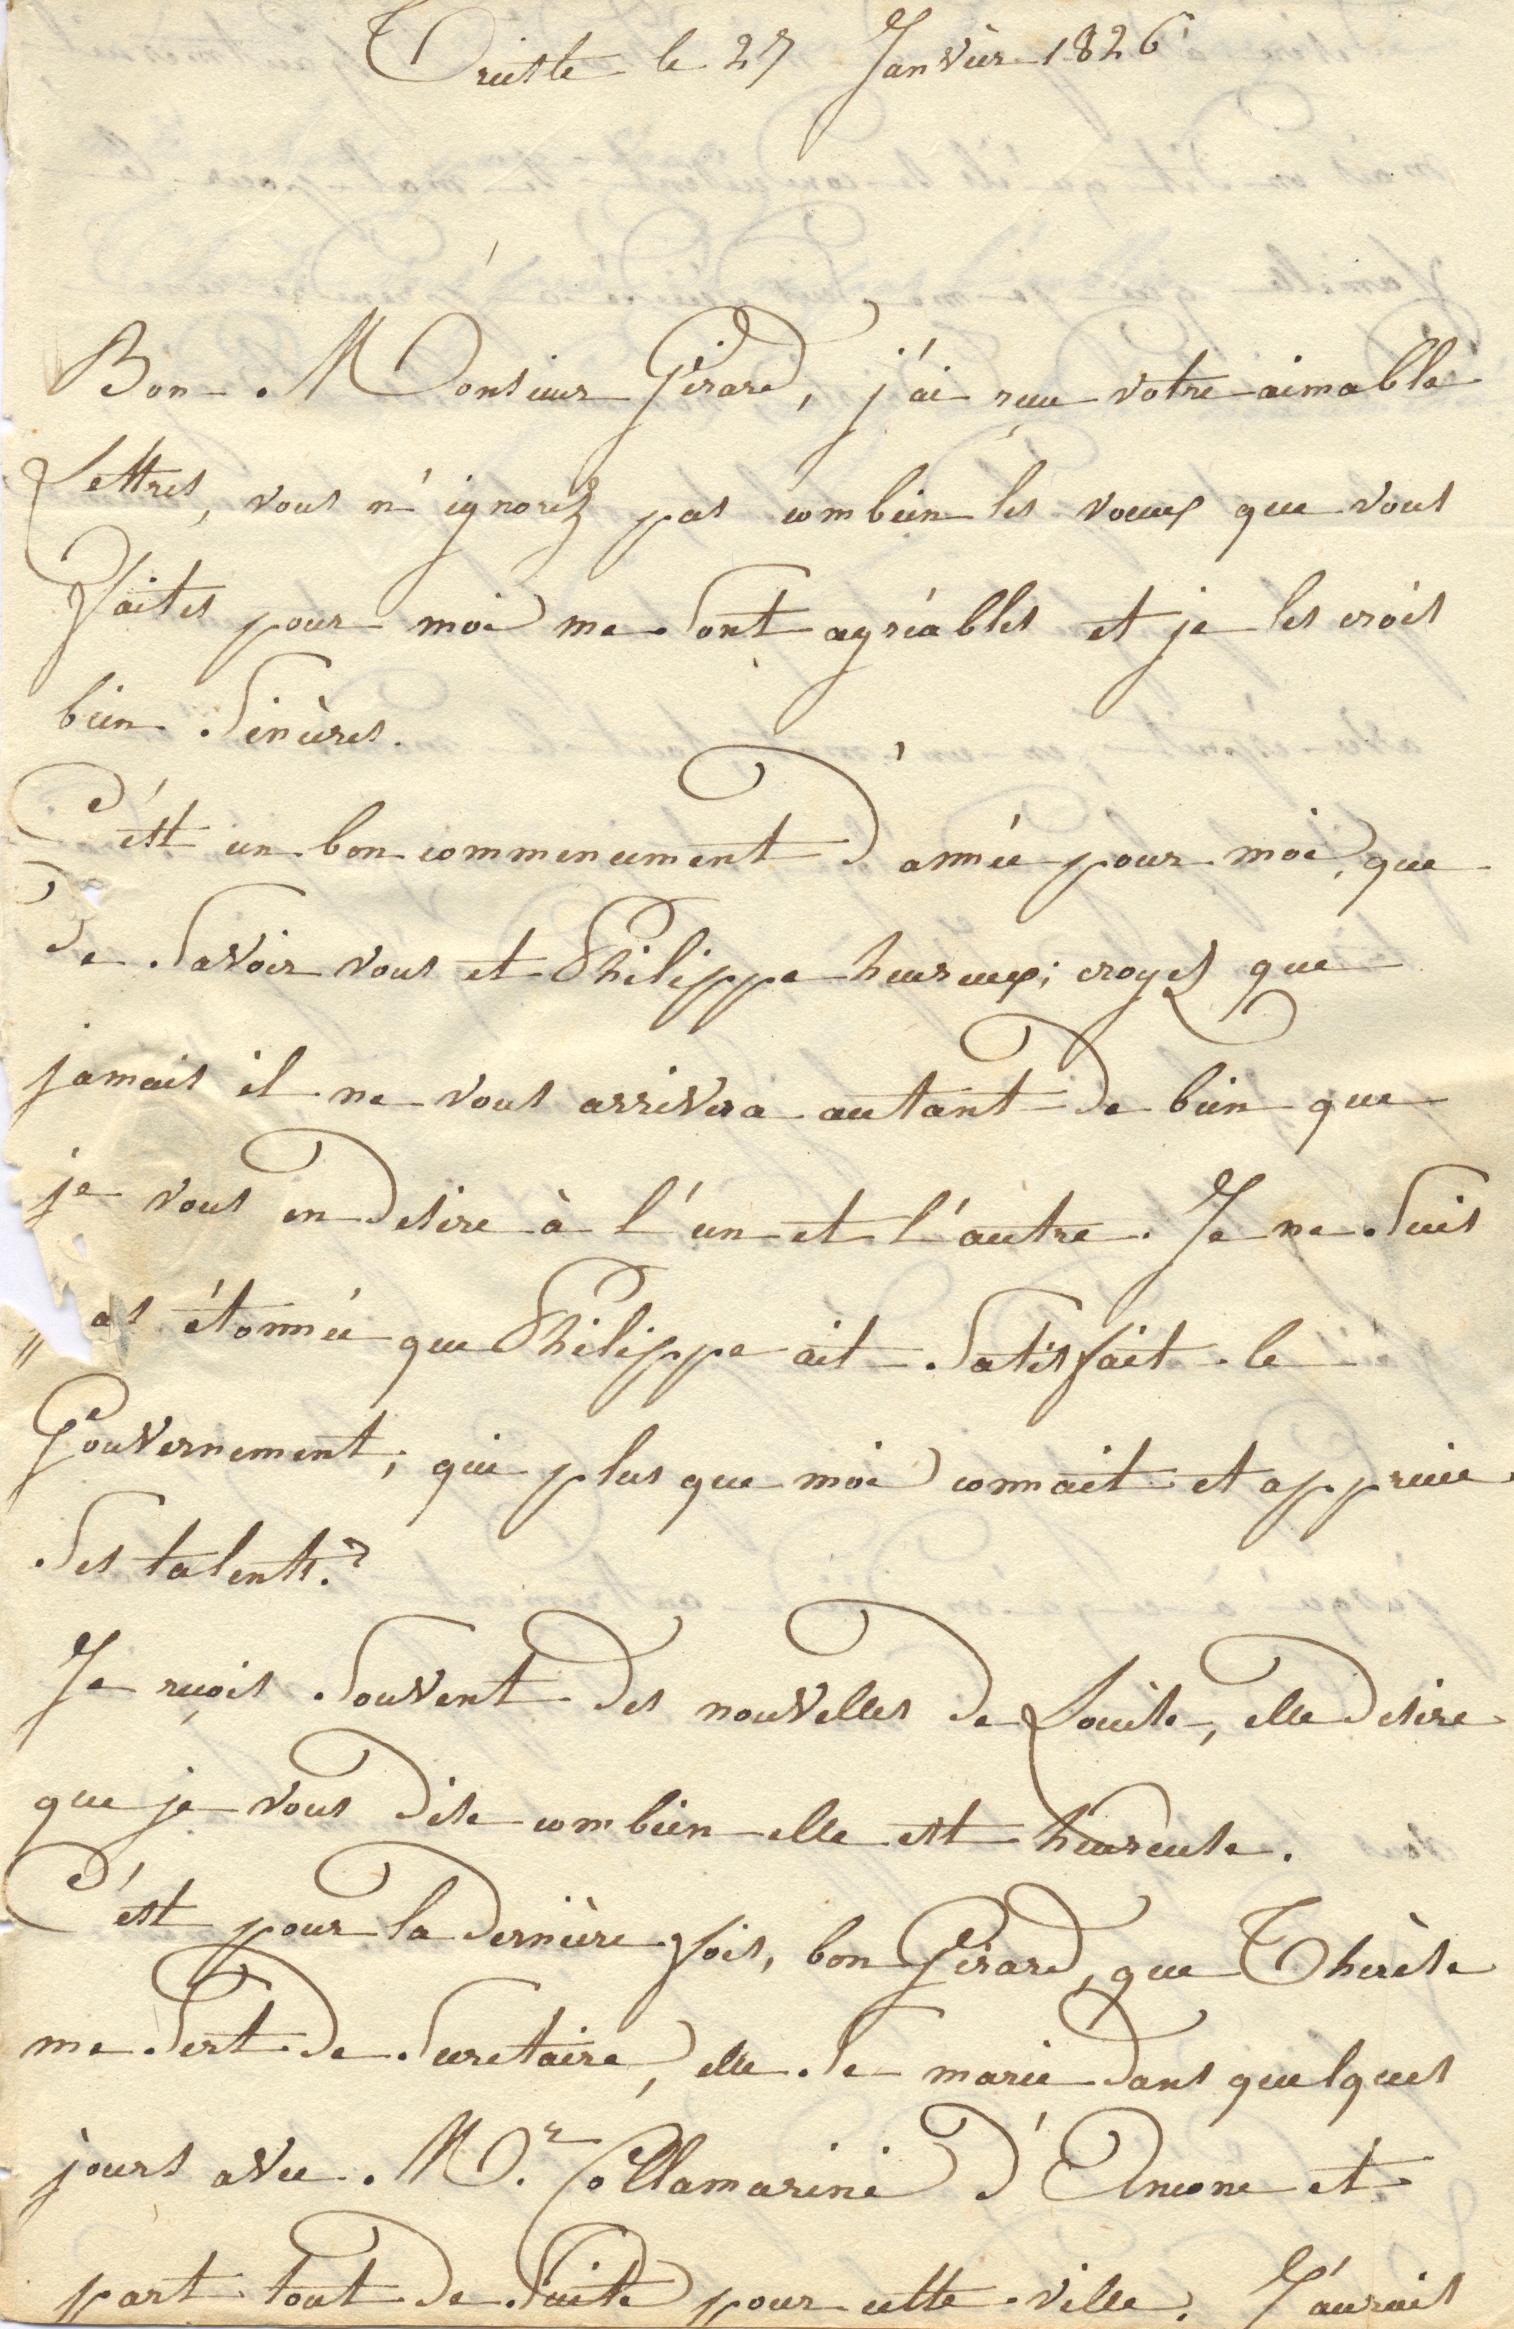 Trieste le 27 Janvier 1826
Bon Monsieur Girard, j'ai reçu votre aimable
Lettres, vous n'ignorez pas combien les voeux que vous
faites pour moi me sont agréables et je les crois
bien Sincères.
C'est un bon commencement d'année pour moi, que
de Savoir vous et Philippe heureux; croyez que
jamais il ne vous arrivera autant de bien que
je vous en desire à l'un et l'autre. Je ne Suis
pas étonnée que Philippe ait Satisfait le
Gouvernement; qui plus que moi connait et apprecie
Ses talents?
Je reçois Souvent des nouvelles de Louise, elle desire
que je vous dise combien elle est heureuse.
C'est pour la dernière fois, bon Girard, que Thérèse
me Sert de Secretaire, elle Se marie dans quelques
jours avec Mr. Collamarini d'Ancone et
part tout de Suite pour cette ville. J'aurais